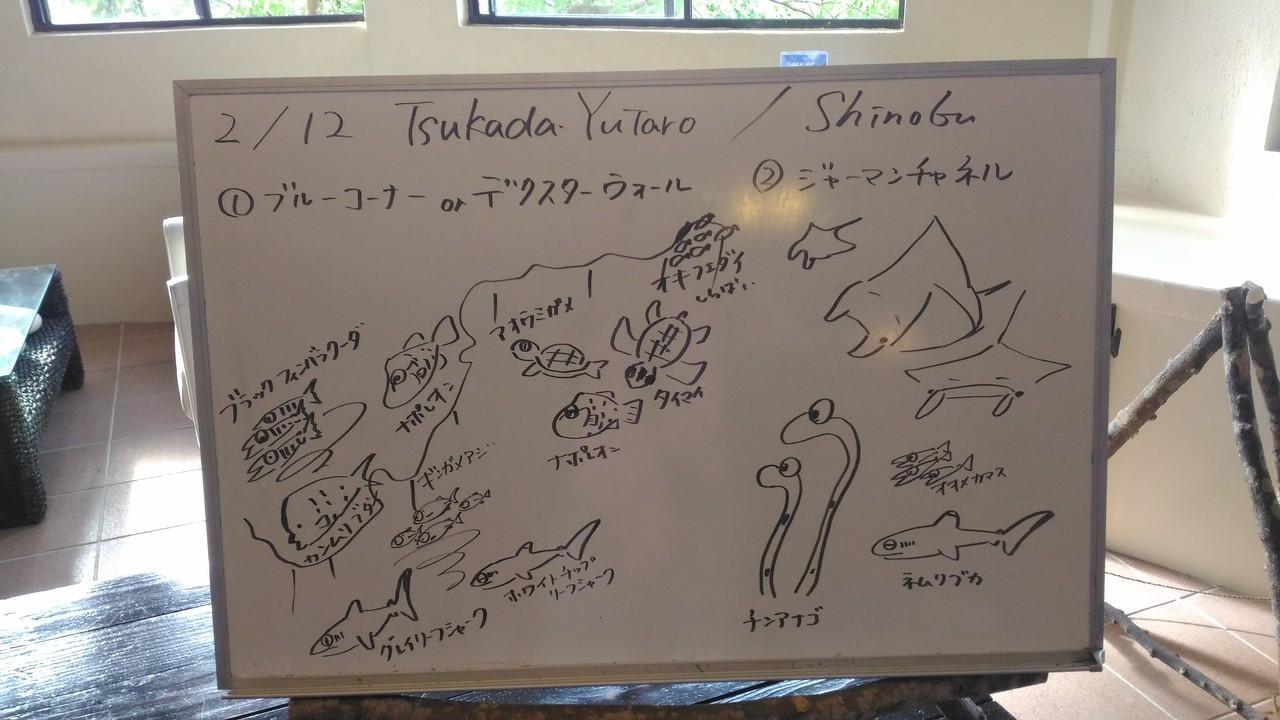 2/12 Tsukada YuTaro / Shinobu
① ブルーコーナー or デクスターウォール
② ジャーマンチャネル
オキフエダイ
いっぱい
アオウミガメ
ブラックフィンバラクーダ
ナポレオン
タイマイ
ナポレオン
ギンガメアジ
オオメカマス
カンムリブダイ
ホワイトチップ
リーフシャーク
ネムリブカ
グレイリーフシャーク
チンアナゴ